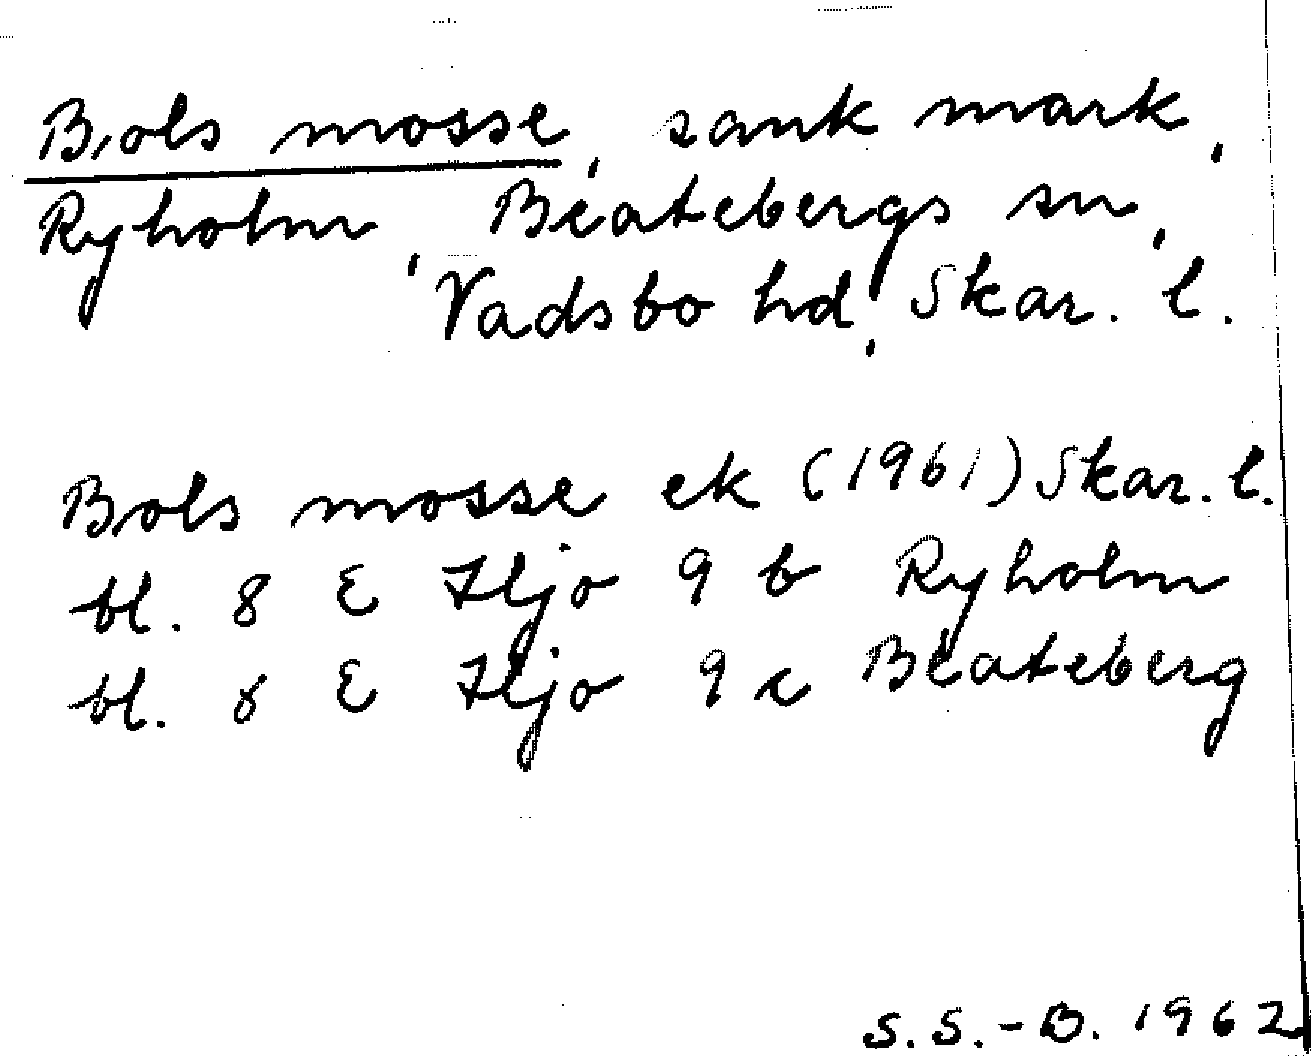 Bols mosse, sank mark,
Ryholm, Beatebergs sn,
Vadsbo hd, Skar. l.
Bols mosse ek (1961) Skar. l.
bl. 8 E Hjo 9 b Ryholm
bl. 8 E Hjo 9 c Beateberg
S.S.-B. 1962